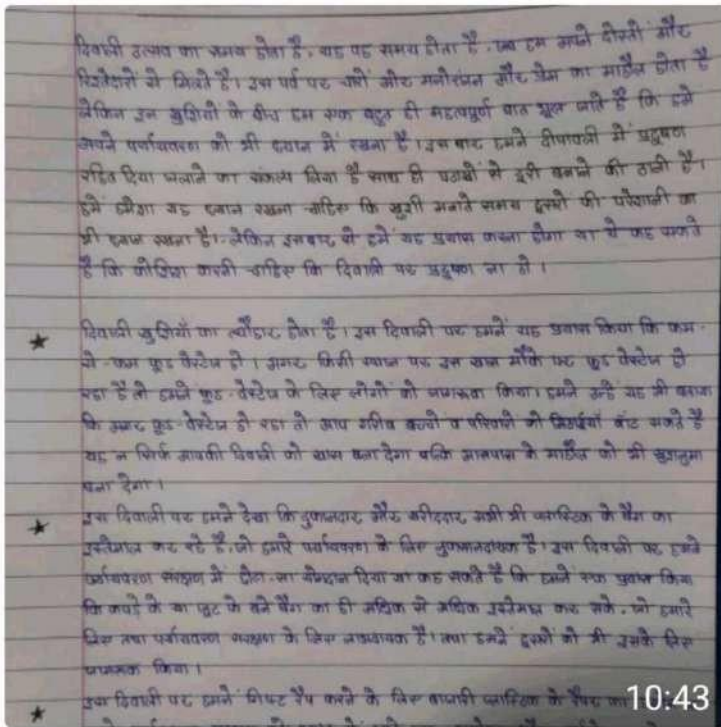 दिवाली उत्सव का समय होता है, यह वह समय होता है, जब हम अपने दोस्तों और
रिश्तेदारों से मिलते है। इस पर्व पर चारों ओर मनोरंजन और प्रेम का माहौल होता है
लेकिन इन खुशियों के बीच हम एक बहुत ही महत्वपूर्ण बात भूल जाते है कि हमे
अपने पर्यायवरण को भी ध्यान में रखना है। इस बार हमने दीपावली में प्रदूषण
रहित दिया जलाने का संकल्प लिया है साथ ही पटाखों से दूरी बनाने की ठानी है।
हमें हमेशा यह ध्यान रखना चाहिए कि खुशी मनाते समय दूसरो की परेशानी का
भी ध्यान रखना है। लेकिन इसबार से हमें यह प्रयास करना होगा या ये कह सकते
है कि कोशिश करनी चाहिए कि दिवाली पर प्रदूषण ना हो।
दिवाली खुशियों का त्यौहार होता है। इस दिवाली पर हमने यह प्रयास किया कि कम-
से-कम फूड वेस्टेज हो। अगर किसी स्थान पर इस खास मौके पर फूड वेस्टेज हो
रहा है तो हमने फूड-वेस्टेज के लिए लोगों को जागरूक किया। हमने उन्हें यह भी बताया
कि अगर फूड-वेस्टेज हो रहा तो आप गरीब बच्चों व परिवारो को मिठाईयाँ बाँट सकते है
यह न सिर्फ आपकी दिवाली को खास बना देगा बल्कि आसपास के माहौल को भी खुशनुमा
बना देगा।
इस दिवाली पर हमने देखा कि दुकानदार और खरीददार सभी भी प्लास्टिक के बैग का
इस्तेमाल कर रहे है, जो हमारे पर्यायवरण के लिए नुकसानदायक है। इस दिवाली पर हमने
पर्यायवरण संरक्षण में छोटा-सा योगदान दिया या कह सकते है कि हमने एक प्रयास किया
कि कपड़े के या जूट के बने बैग का ही अधिक से अधिक इस्तेमाल कर सके, जो हमारे
लिए तथा पर्यायवरण संरक्षण के लिए लाभदायक है। तथा हमने दूसरों को भी इसके लिए
जागरूक किया।
इस दिवाली पर हमने गिफ्ट रैप करने के लिए बाजारी प्लास्टिक के रैपर का
10:43